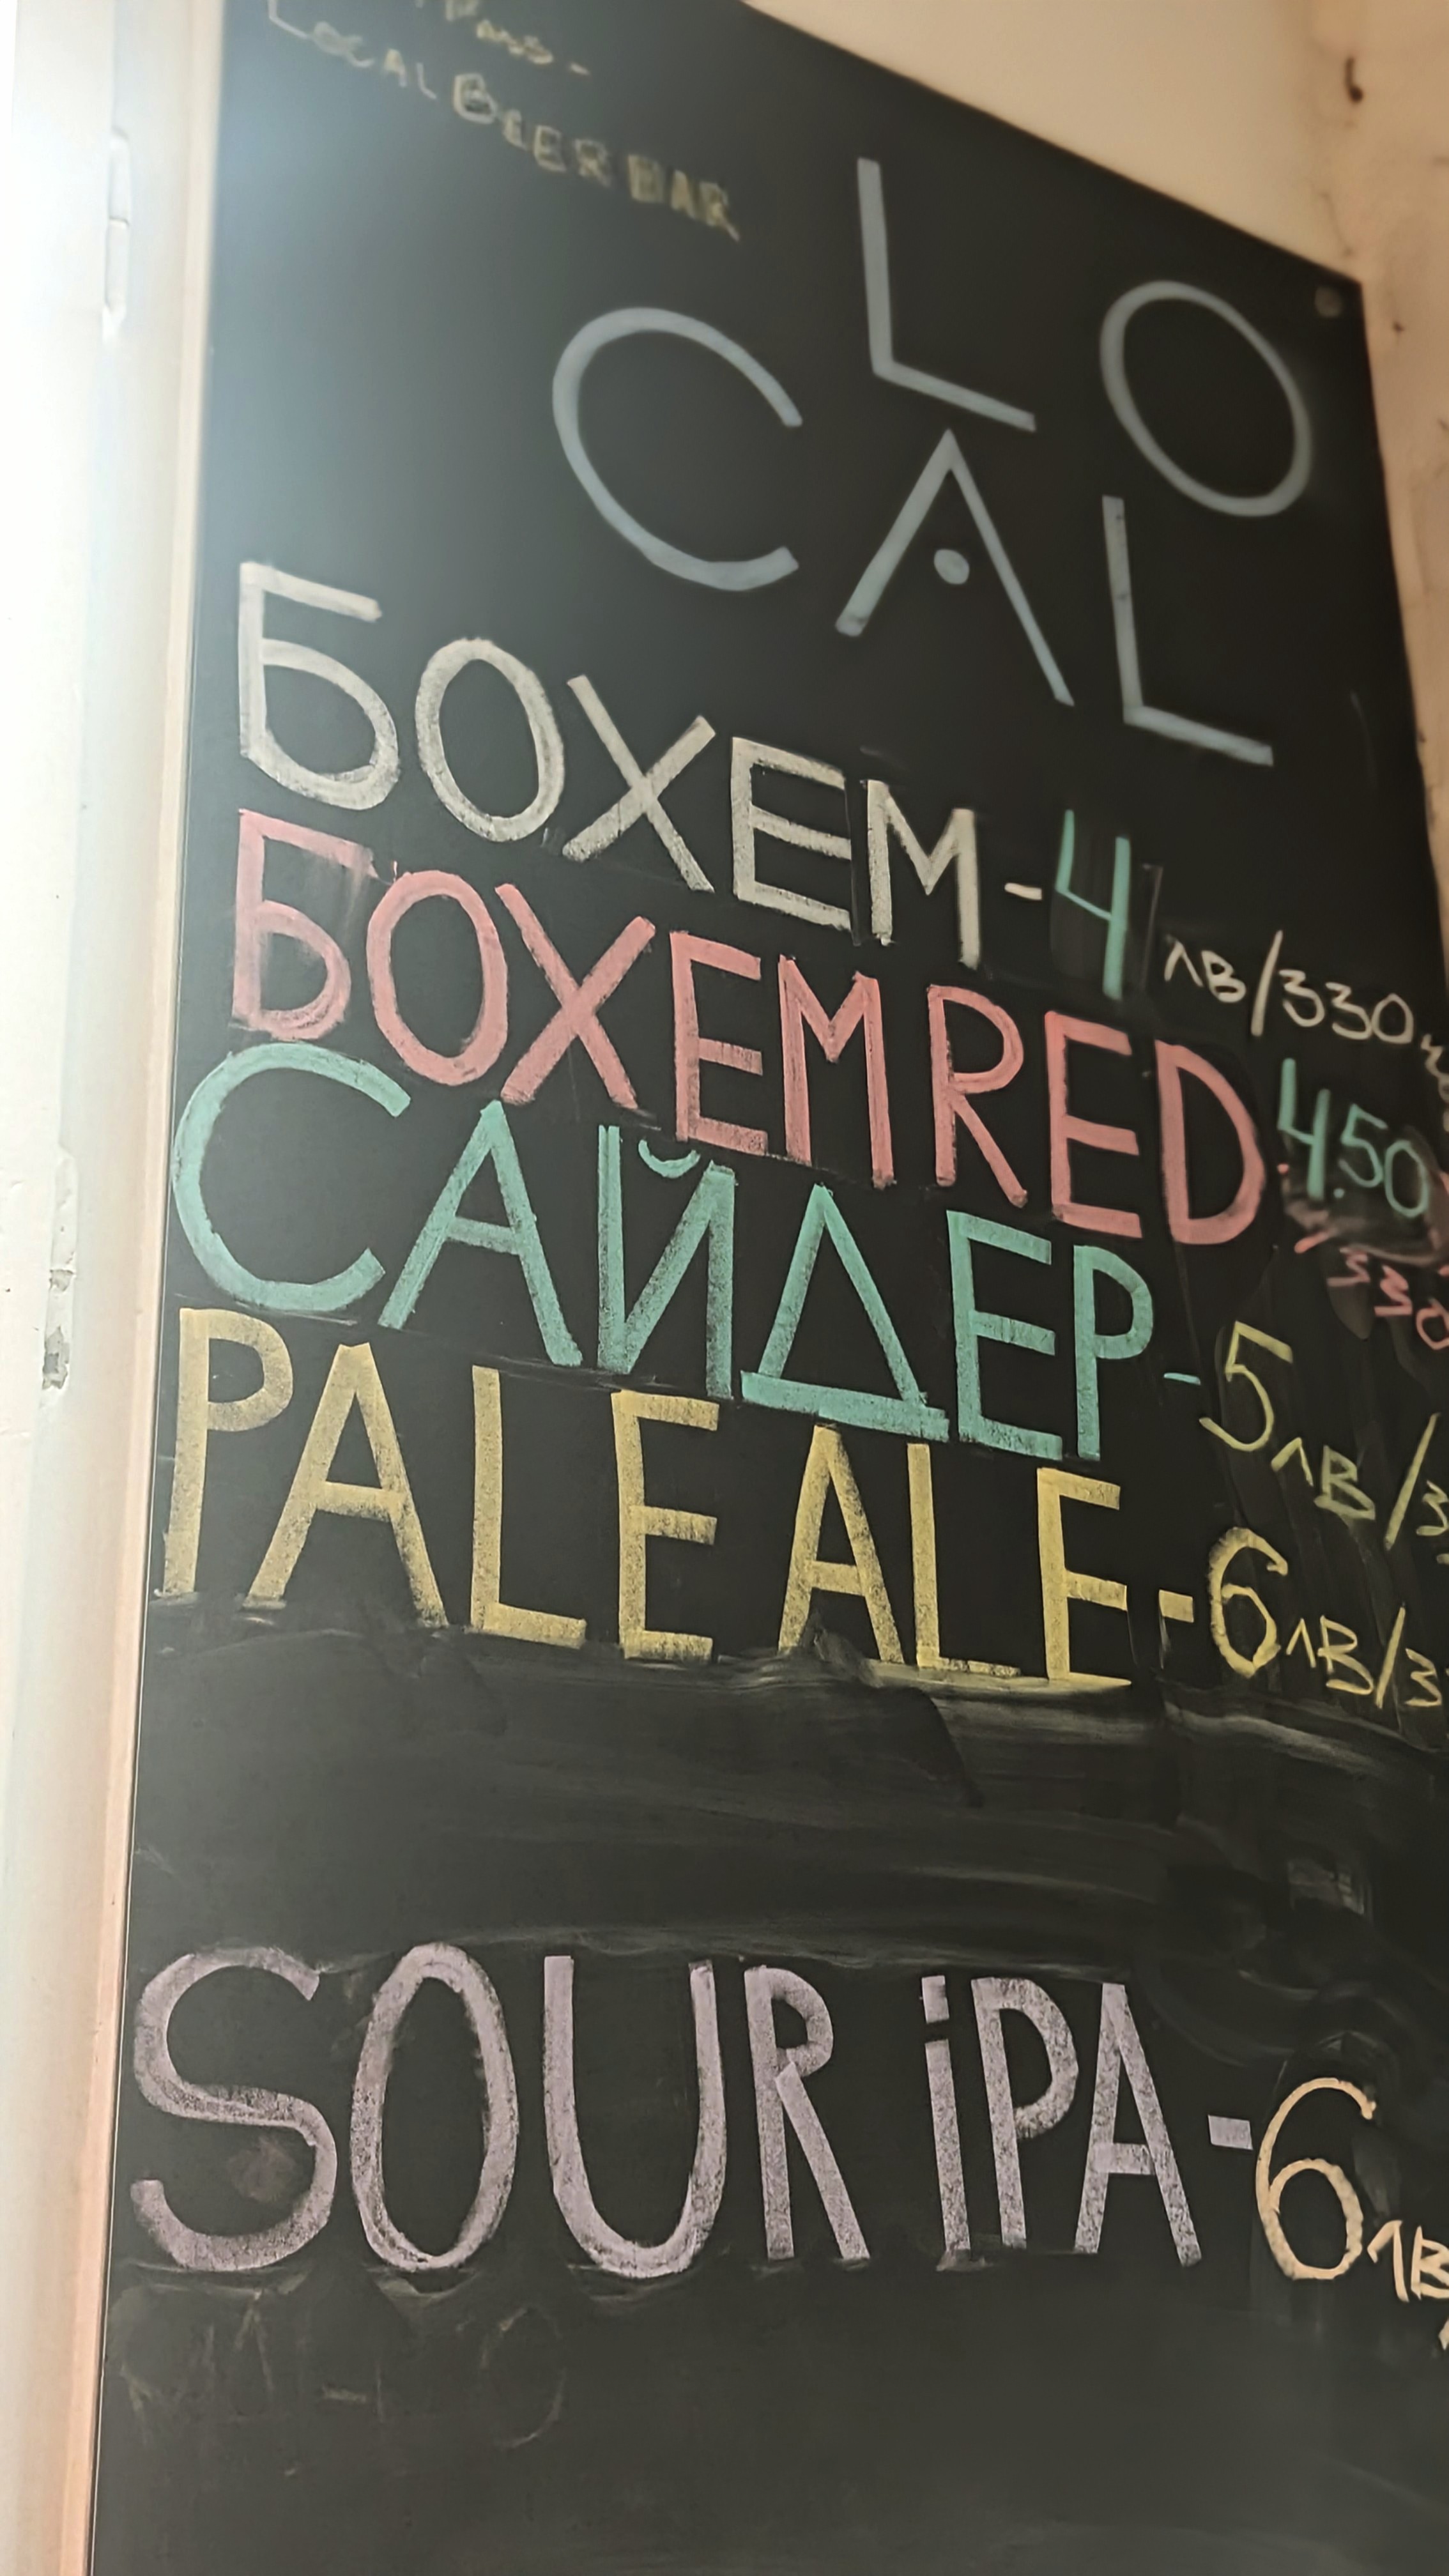 Pass -
LOCAL BEER BAR
LO
CAL
БОХЕМ - 4 лв/330
БОХЕМ RED 4.50
330
САЙДЕР - 5 лв/3
PALE ALE - 6 лв/3
SOUR iPA - 6 лв